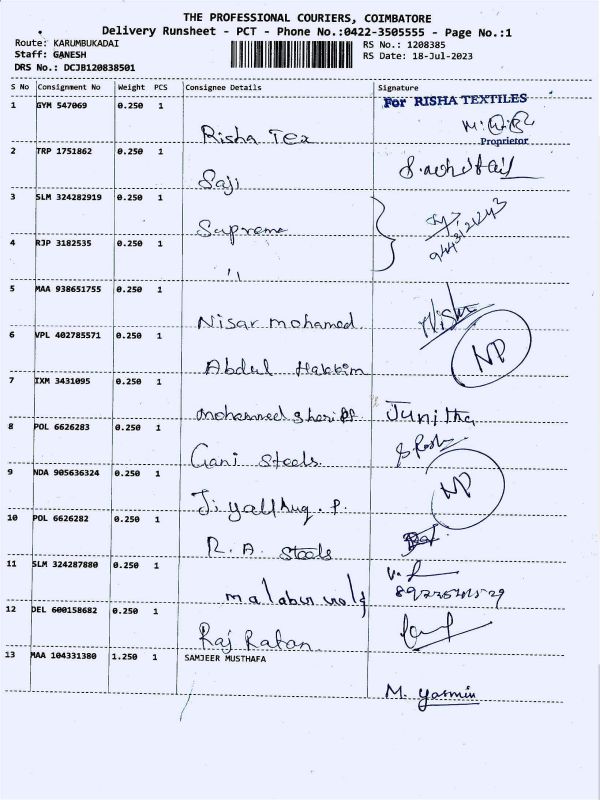 THE PROFESSIONAL COURIERS, COIMBATORE
Delivery Runsheet - PCT - Phone No.:0422-3505555 - Page No.:1
Route: KARUMBUKADAI
RS No.: 1208385
Staff: GANESH
RS Date: 18-Jul-2023
DRS No.: DCJB120838501
S No Consignment No Weight PCS Consignee Details Signature
1 GYM 547069 0.250 1 Risha Tex For RISHA TEXTILES
Proprietor
2 TRP 1751862 0.250 1 Saji
3 SLM 324282919 0.250 1 Supreme
4 RJP 3182535 0.250 1 "
5 MAA 938651755 0.250 1 Nisar mohamed
6 VPL 402785571 0.250 1 Abdul Hakkim NP
7 IXM 3431095 0.250 1 mohammed Sheriff Junitha
8 POL 6626283 0.250 1 Gani Steels
9 NDA 905636324 0.250 1 NP
10 POL 6626282 0.250 1 R. A. Steels
11 SLM 324287880 0.250 1 malabar
12 DEL 600158682 0.250 1 Raj Ratan
13 MAA 104331380 1.250 1 SAMJEER MUSTHAFA M. Yasmin